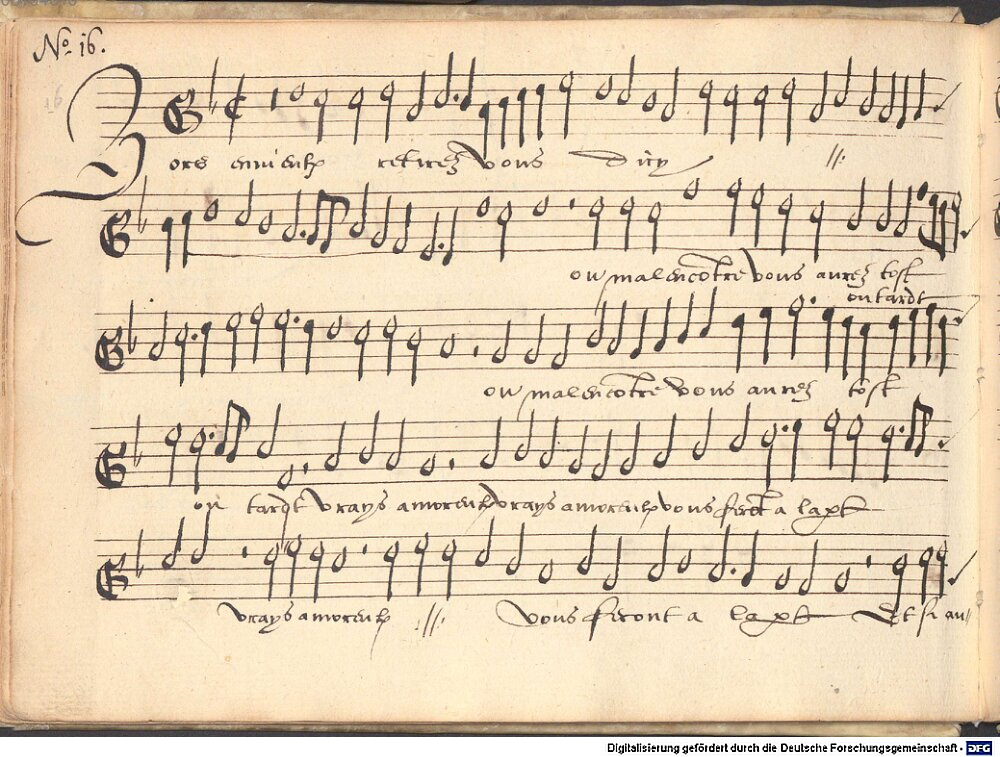 No. 16.
Jors envieulx retirez vous dicy //:
ou malencõtre vous aurez tost
ou tardt
ou malencõtre vous aurez tost
ou tardt vrays amoreulx vrays amoreulx vous ferõt a
vrays amoreulx //: vous feront a Et si au
Digitalisierung gefördert durch die Deutsche Forschungsgemeinschaft - DFG